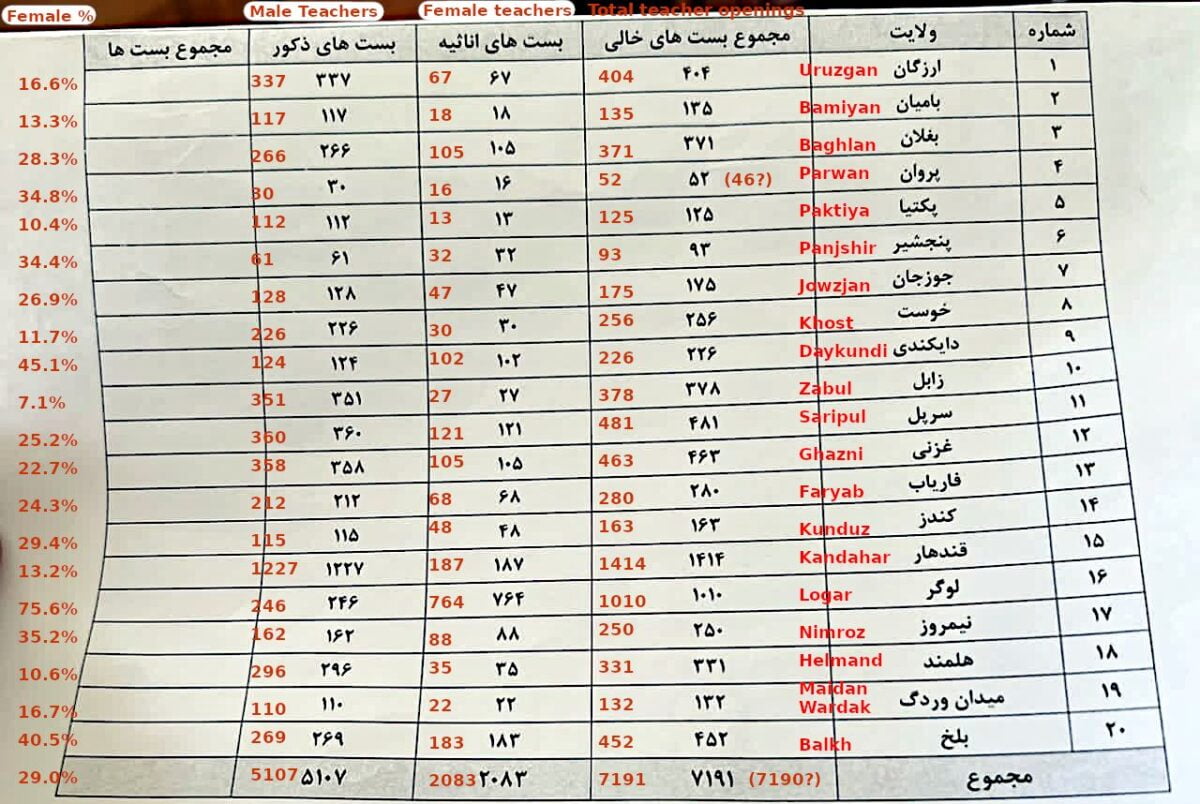 Female % Male Teachers Female teachers Total teacher openings
شماره ولایت مجموع بست های خالی بست های اناثیه بست های ذکور مجموع بست ها
۱ ارزگان Uruzgan ۴۰۴ 404 ۶۷ 67 ۳۳۷ 337 16.6%
۲ بامیان Bamiyan ۱۳۵ 135 ۱۸ 18 ۱۱۷ 117 13.3%
۳ بغلان Baghlan ۳۷۱ 371 ۱۰۵ 105 ۲۶۶ 266 28.3%
۴ پروان Parwan (46?) ۵۲ 52 ۱۶ 16 ۳۰ 30 34.8%
۵ پکتیا Paktiya ۱۲۵ 125 ۱۳ 13 ۱۱۲ 112 10.4%
۶ پنجشیر Panjshir ۹۳ 93 ۳۲ 32 ۶۱ 61 34.4%
۷ جوزجان Jowzjan ۱۷۵ 175 ۴۷ 47 ۱۲۸ 128 26.9%
۸ خوست Khost ۲۵۶ 256 ۳۰ 30 ۲۲۶ 226 11.7%
۹ دایکندی Daykundi ۲۲۶ 226 ۱۰۲ 102 ۱۲۴ 124 45.1%
۱۰ زابل Zabul ۳۷۸ 378 ۲۷ 27 ۳۵۱ 351 7.1%
۱۱ سرپل Saripul ۴۸۱ 481 ۱۲۱ 121 ۳۶۰ 360 25.2%
۱۲ غزنی Ghazni ۴۶۳ 463 ۱۰۵ 105 ۳۵۸ 358 22.7%
۱۳ فاریاب Faryab ۲۸۰ 280 ۶۸ 68 ۲۱۲ 212 24.3%
۱۴ کندز Kunduz ۱۶۳ 163 ۴۸ 48 ۱۱۵ 115 29.4%
۱۵ قندهار Kandahar ۱۴۱۴ 1414 ۱۸۷ 187 ۱۲۲۷ 1227 13.2%
۱۶ لوگر Logar ۱۰۱۰ 1010 ۷۶۴ 764 ۲۴۶ 246 75.6%
۱۷ نیمروز Nimroz ۲۵۰ 250 ۸۸ 88 ۱۶۲ 162 35.2%
۱۸ هلمند Helmand ۳۳۱ 331 ۳۵ 35 ۲۹۶ 296 10.6%
۱۹ میدان وردگ Maidan Wardak ۱۳۲ 132 ۲۲ 22 ۱۱۰ 110 16.7%
۲۰ بلخ Balkh ۴۵۲ 452 ۱۸۳ 183 ۲۶۹ 269 40.5%
مجموع (7190?) ۷۱۹۱ 7191 ۲۰۸۳ 2083 ۵۱۰۷ 5107 29.0%